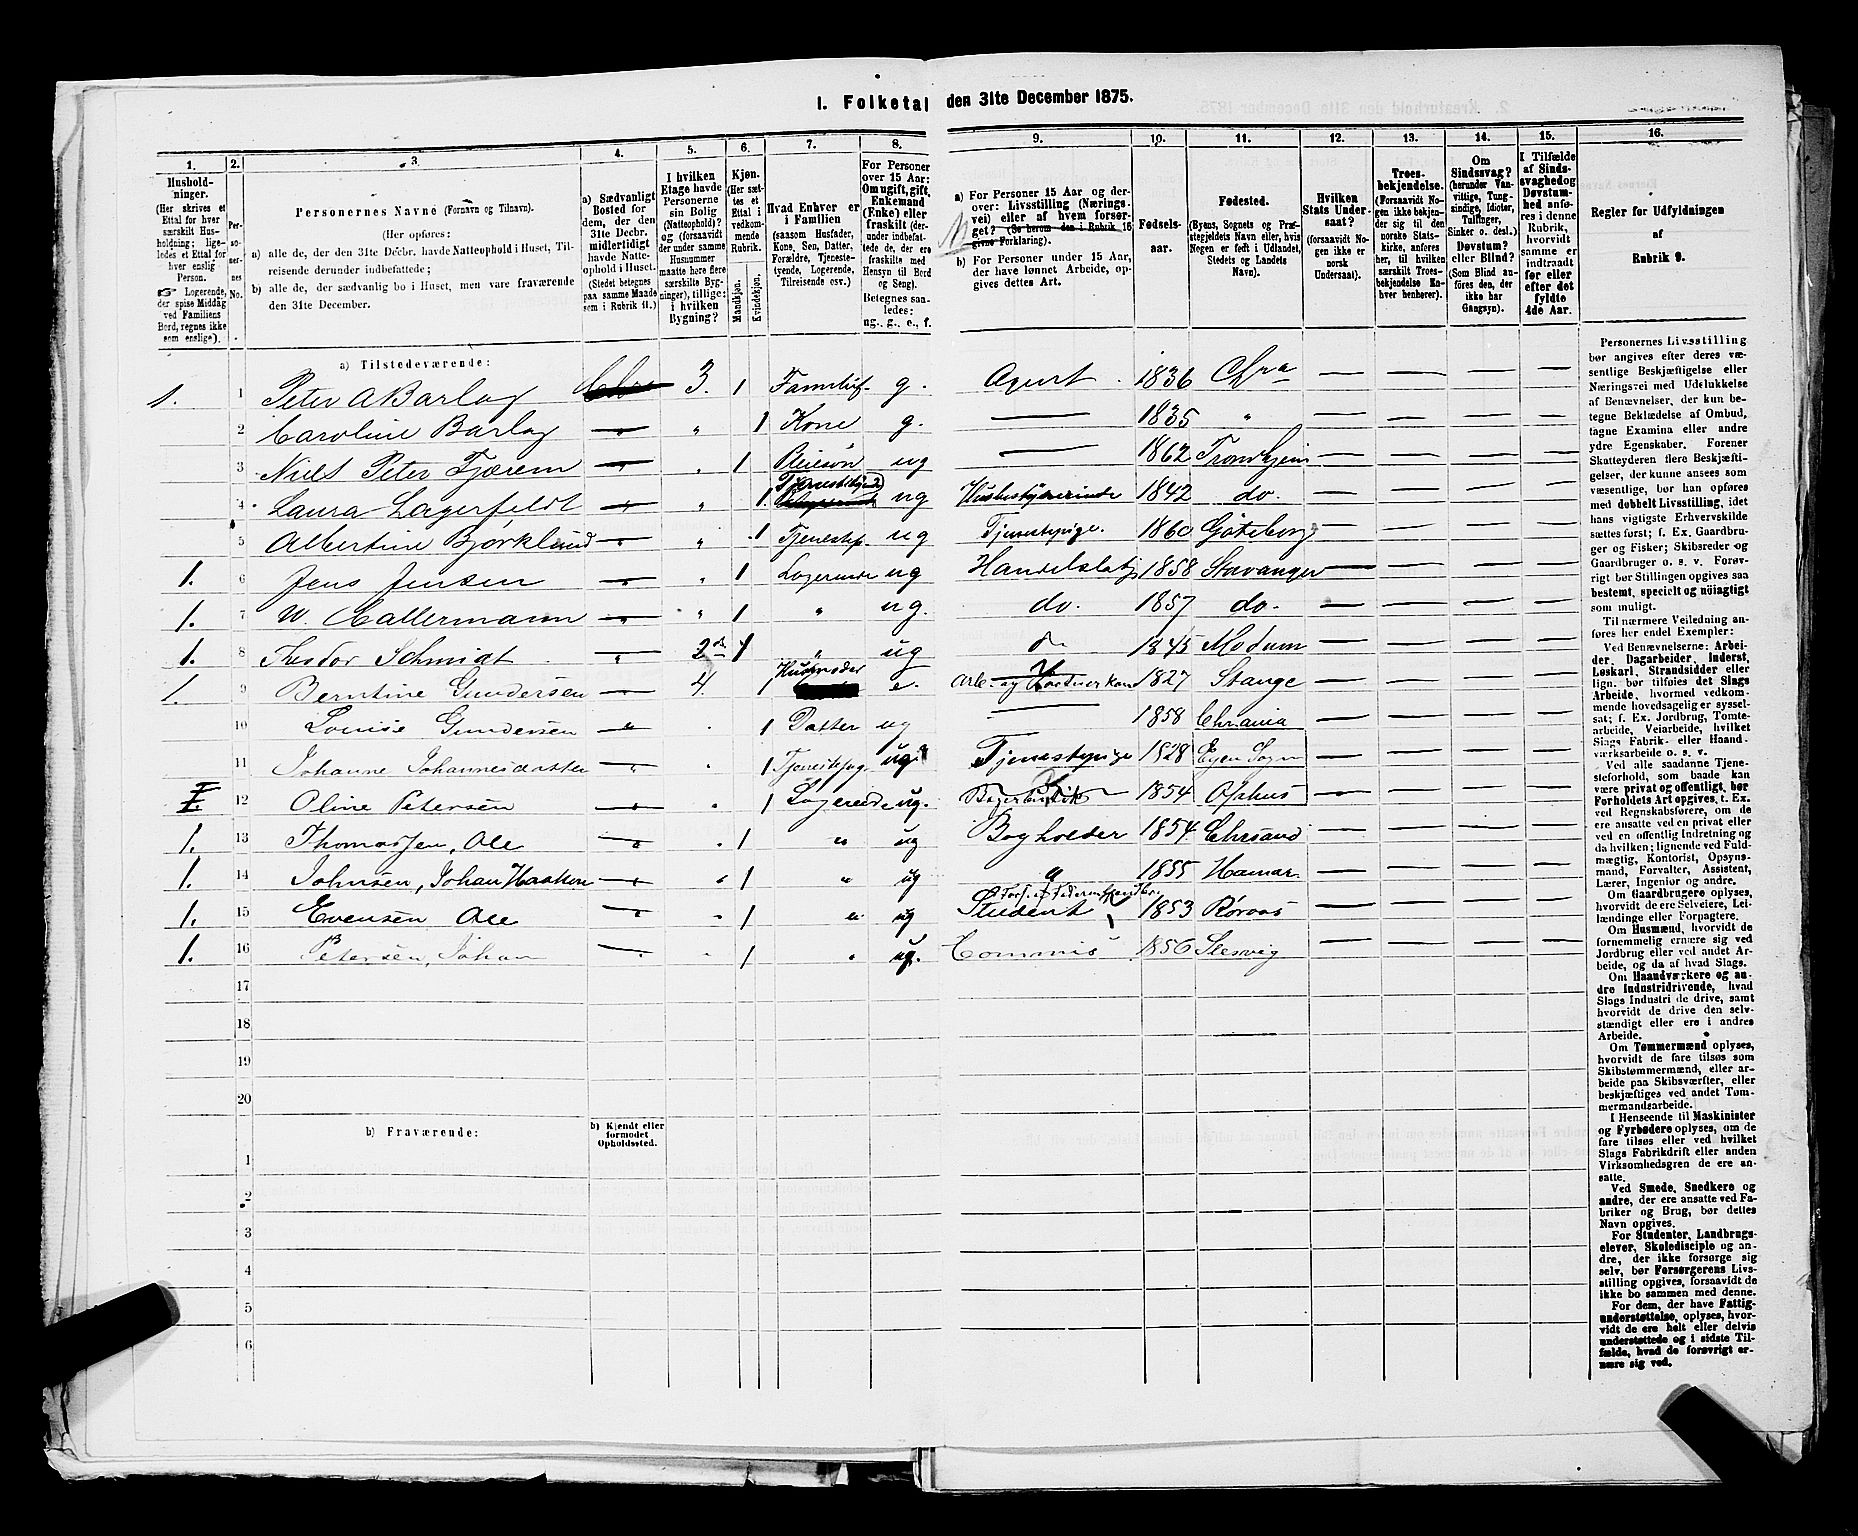 I. Folketal den 31te December 1875.
1. 2. 3. 4. 5. 6. 7. 8. 9. 10. 11. 12. 13. 14. 15. 16.
Hushold-
ninger.
(Her skrives et
Ettal for hver
særskilt Hus-
holdning; lige-
ledes et Ettal for
hver enslig
Person.
☞ Logerende,
der spise Middag
ved Familiens
Bord, regnes ikke
som enslige).
Per-
so-
ner-
nes
No.
Personernes Navne (Fornavn og Tilnavn).
(Her opføres:
a) alle de, der den 31te Decbr. havde Natteophold i Huset, Til-
reisende derunder indbefattede;
b) alle de, der sædvanlig bo i Huset, men vare fraværende
den 31te December.
a) Sædvanligt
Bosted for
dem, der den
31te Decbr.
midlertidigt
havde Natte-
ophold i Huset.
(Stedet betegnes
paa samme Maade
som i Rubrik 11.)
I hvilken
Etage havde
Personerne
sin Bolig
(Natteophold)?
og (forsaavidt
der under samme
Husnummer
maatte høre flere
særskilte Byg-
ninger), tillige:
i hvilken
Bygning?
Kjøn.
(Her sæt-
tes et
Ettal i
vedkom-
mende
Rubrik.
Mandkjøn.
Kvindekjøn.
Hvad Enhver er
i Familien
(saasom Husfader,
Kone, Søn, Datter,
Forældre, Tjeneste-
tyende, Logerende,
Tilreisende osv.)
For Personer
over 15 Aar:
Om ugift, gift,
Enkemand
(Enke) eller
fraskilt (der-
under indbefat-
tede de, der ere
fraskilte med
Hensyn til Bord
og Seng).
Betegnes saa-
ledes:
ug., g., e., f.
a) For Personer 15 Aar og der-
over: Livsstilling (Nærings-
vei) eller af hvem forsør-
get? (Se herom den i Rubrik 16
givne Forklaring).
b) For Personer under 15 Aar,
der have lønnet Arbeide, op-
gives dettes Art.
Fødsels-
aar.
Fødested.
(Byens, Sognets og Præ-
stegjeldets Navn eller, hvis
Nogen er født i Udlandet,
Stedets og Landets
Navn).
Hvilken
Stats Under-
saat?
(forsaavidt No-
gen ikke er
norsk
Undersaat).
Troes-
bekjendelse.
(Forsaavidt No-
gen ikke bekjen-
der sig til den
norske Stats-
kirke, anføres
her, til hvilken
særskilt Troes-
bekjendelse En-
hver henhører).
Om
Sindssvag?
(herunder Van-
vittige, Tung-
sindige, Idioter,
Tullinger,
Sinker o. desl.)
Døvstum?
eller Blind?
(Som Blind an-
føres den, der
ikke har
Gangsyn).
I Tilfælde
af Sinds-
svaghed og
Døvstum-
hed anfø-
res i denne
Rubrik,
hvorvidt
samme er
indtraadt
før eller
efter det
fyldte
4de Aar.
Regler for Udfyldningen
af
Rubrik 9.
a) Tilstedeværende:
1. 1 Peter A Barlag 3. 1 g. Agent 1836 Chra
2 Caroline Barlag " 1 Kone g. 1835 "
3 Niels Peter Fjærem " 1 Pleiesøn ug 1862 Trondhjem
4 Laura Lagerfeldt " 1 ug Husbestyrerinde 1842 do.
5 Albertine Bjørklund " 1 Tjenestep. ug Tjenestepige. 1860 Göteborg
1. 6 Jens Jensen " 1 Logerende ug 1858 Stavanger
1. 7 W. Callermann " 1 " ug. do. 1857 do.
1. 8 Theodor Schmidt " 1 " ug 1845 Modum
1. 9 Berntine Gundersen 4. 1 Husmoder e. 1827 Stange
10 Louise Gundersen 1 Datter ug 1858 Chrania
11 Johanne Johannesdatter 1 ug. Tjenestepige 1828
12 Oline Petersen 1 Logerende ug. 1854
1. 13 Thomassen, Ole 1 " ug Bogholder 1854 Chrsand
1. 14 Johnsen, Johan Haaken 1 " ug " 1855 Hamar
1. 15 Evensen Ole 1 " ug Student 1853 Røraas
1. 16 Petersen, Johan 1 " ug. Commis 1856 Slesvig
17
18
19
20
b) Fraværende:
b) Kjendt eller
formodet
Opholdssted.
1
2
3
4
5
6
Personernes Livsstilling
bør angives efter deres væ-
sentlige Beskjæftigelse eller
Næringsvei med Udelukkelse
af Benævnelser, der kun be-
tegne Beklædelse af Ombud,
tagne Examina eller andre
ydre Egenskaber. Forener
Skatteyderen flere Beskjæfti-
gelser, der kunne ansees som
væsentlige, bør han opføres
med dobbelt Livsstilling, idet
hans vigtigste Erhvervskilde
sættes først; f. Ex. Gaardbru-
ger og Fisker; Skibsreder og
Gaardbruger o. s. v. Forøv-
rigt bør Stillingen opgives saa
bestemt, specielt og nöiagtigt
som muligt.
Til nærmere Veiledning an-
føres her endel Exempler:
Ved Benævnelserne: Arbei-
der, Dagarbeider, Inderst,
Løskarl, Strandsidder eller
lign. bør tilføies det Slags
Arbeide, hvormed vedkom-
mende hovedsagelig er syssel-
sat; f. Ex. Jordbrug, Tomte-
arbeide, Veiarbeide, hvilket
Slags Fabrik- eller Haand-
værksarbeide o. s. v.
Ved alle saadanne Tjene-
steforhold, som baade kan
være privat og offentligt, bør
Forholdets Art opgives, t. Ex.
ved Regnskabsførere, om de
ere ansatte ved en privat eller
ved en offentlig Indretning og
da hvilken; lignende ved Fuld-
mægtig, Kontorist, Opsyns-
mand, Forvalter, Assistent,
Lærer, Ingeniør og andre.
Om Gaardbrugere oplyses,
hvorvidt de ere Selveiere, Lei-
lændinge eller Forpagtere.
Om Husmænd, hvorvidt de
fornemmelig ernære sig ved
Jordbrug eller ved andet Ar-
beide, og da af hvad Slags.
Om Haandværkere og an-
dre Industridrivende, hvad
Slags Industri de drive, samt
hvorvidt de drive den selv-
stændigt eller ere i andres
Arbeide.
Om Tømmermænd oplyses,
hvorvidt de fare tilsøs som
Skibstømmermænd, eller ar-
beide paa Skibsværfter, eller
beskjæftiges ved andet Tøm-
mermandsarbeide.
I Henseende til Maskinister
og Fyrbødere oplyses, om de
fare tilsøs eller ved hvilket
Slags Fabrikdrift eller anden
Virksomhedsgren de ere an-
satte.
Ved Smede, Snedkere og
andre, der ere ansatte ved Fa-
briker og Brug, bør dettes
Navn opgives.
For Studenter, Landbrugs-
elever, Skoledisciple og an-
dre, der ikke forsørge sig
selv, bør Forsørgerens Livs-
stilling opgives, forsaavidt de
ikke bo sammen med denne.
For dem, der have Fattig-
understøttelse, oplyses, hvor-
vidt de ere helt eller delvis
understøttede og i sidste Til-
fælde, hvad de forøvrigt er-
nære sig ved.